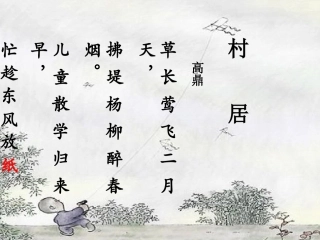 村居
高鼎
草长莺飞二月
天，
拂堤杨柳醉春
烟。
儿童散学归来
早，
忙趁东风放纸